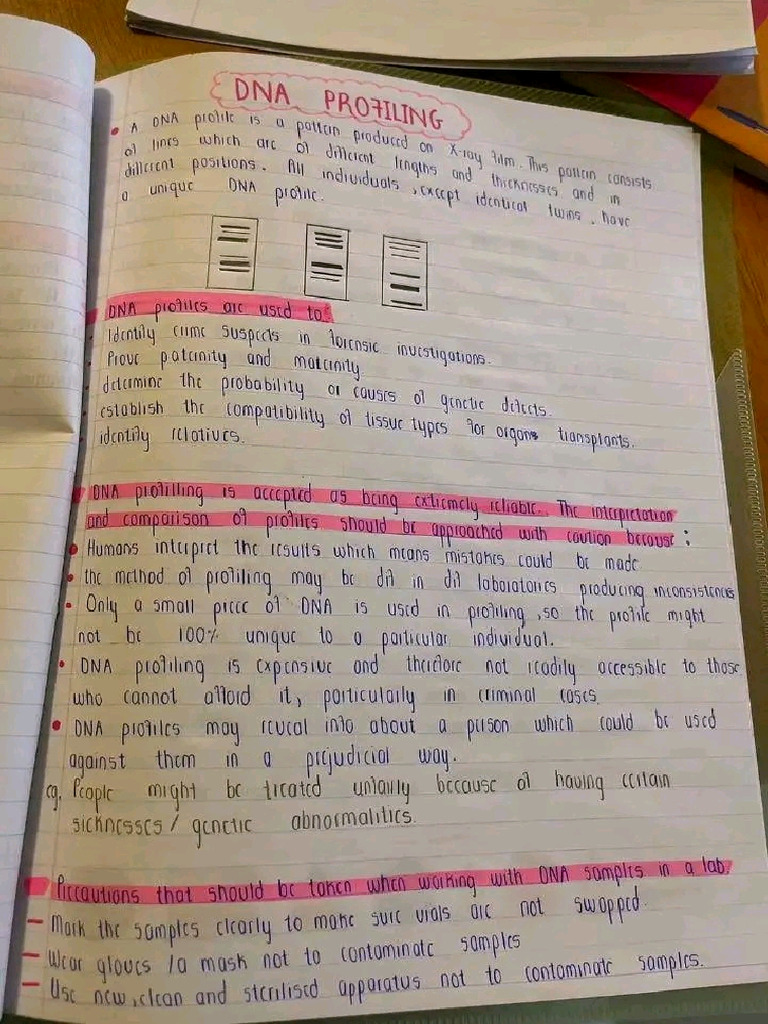 DNA PROFILING
• A DNA profile is a pattern produced on X-ray film. This pattern consists
of lines which are of different lengths and thicknesses and in
different positions. All individuals, except identical twins, have
a unique DNA profile.
DNA profiles are used to:
Identify crime suspects in forensic investigations.
Prove paternity and maternity
determine the probability or causes of genetic defects.
establish the compatibility of tissue types for organs transplants.
identify relatives.
DNA profilling is accepted as being extremely reliable. The interpretation
and comparison of profiles should be approached with caution because:
• Humans interpret the results which means mistakes could be made
• the method of profiling may be dif in dif laboratories producing inconsistences
• Only a small piece of DNA is used in profiling, so the profile might
not be 100% unique to a particular individual.
• DNA profiling is expensive and therefore not readily accessible to those
who cannot afford it, particularly in criminal cases
• DNA profiles may reveal info about a person which could be used
against them in a prejudicial way.
eg. People might be treated unfairly because of having certain
sicknesses / genetic abnormalities.
Precautions that should be taken when working with DNA samples in a lab.
– Mark the samples clearly to make sure vials are not swapped.
– Wear gloves /a mask not to contaminate samples
– Use new, clean and sterilised apparatus not to contaminate samples.